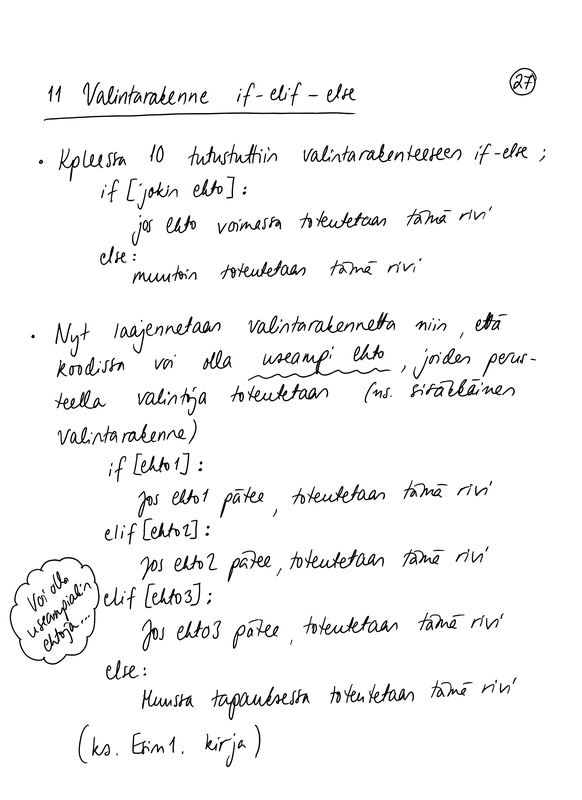 27
11 Valintarakenne if-elif-else
• Kpleessa 10 tutustuttiin valintarakenteeseen if-else;
if [jokin ehto]:
jos ehto voimassa toteutetaan tämä rivi
else:
muutoin toteutetaan tämä rivi
• Nyt laajennetaan valintarakennetta niin, että
koodissa voi olla useampi ehto, joiden perus-
teella valintoja toteutetaan (ns. sisäkkäinen
valintarakenne)
if [ehto1]:
Jos ehto1 pätee, toteutetaan tämä rivi
elif [ehto2]:
Jos ehto2 pätee, toteutetaan tämä rivi
elif [ehto3]:
Jos ehto3 pätee, toteutetaan tämä rivi
else:
Muussa tapauksessa toteutetaan tämä rivi
Voi olla
useampiakin
ehtoja...
(ks. Esim1. kirja)